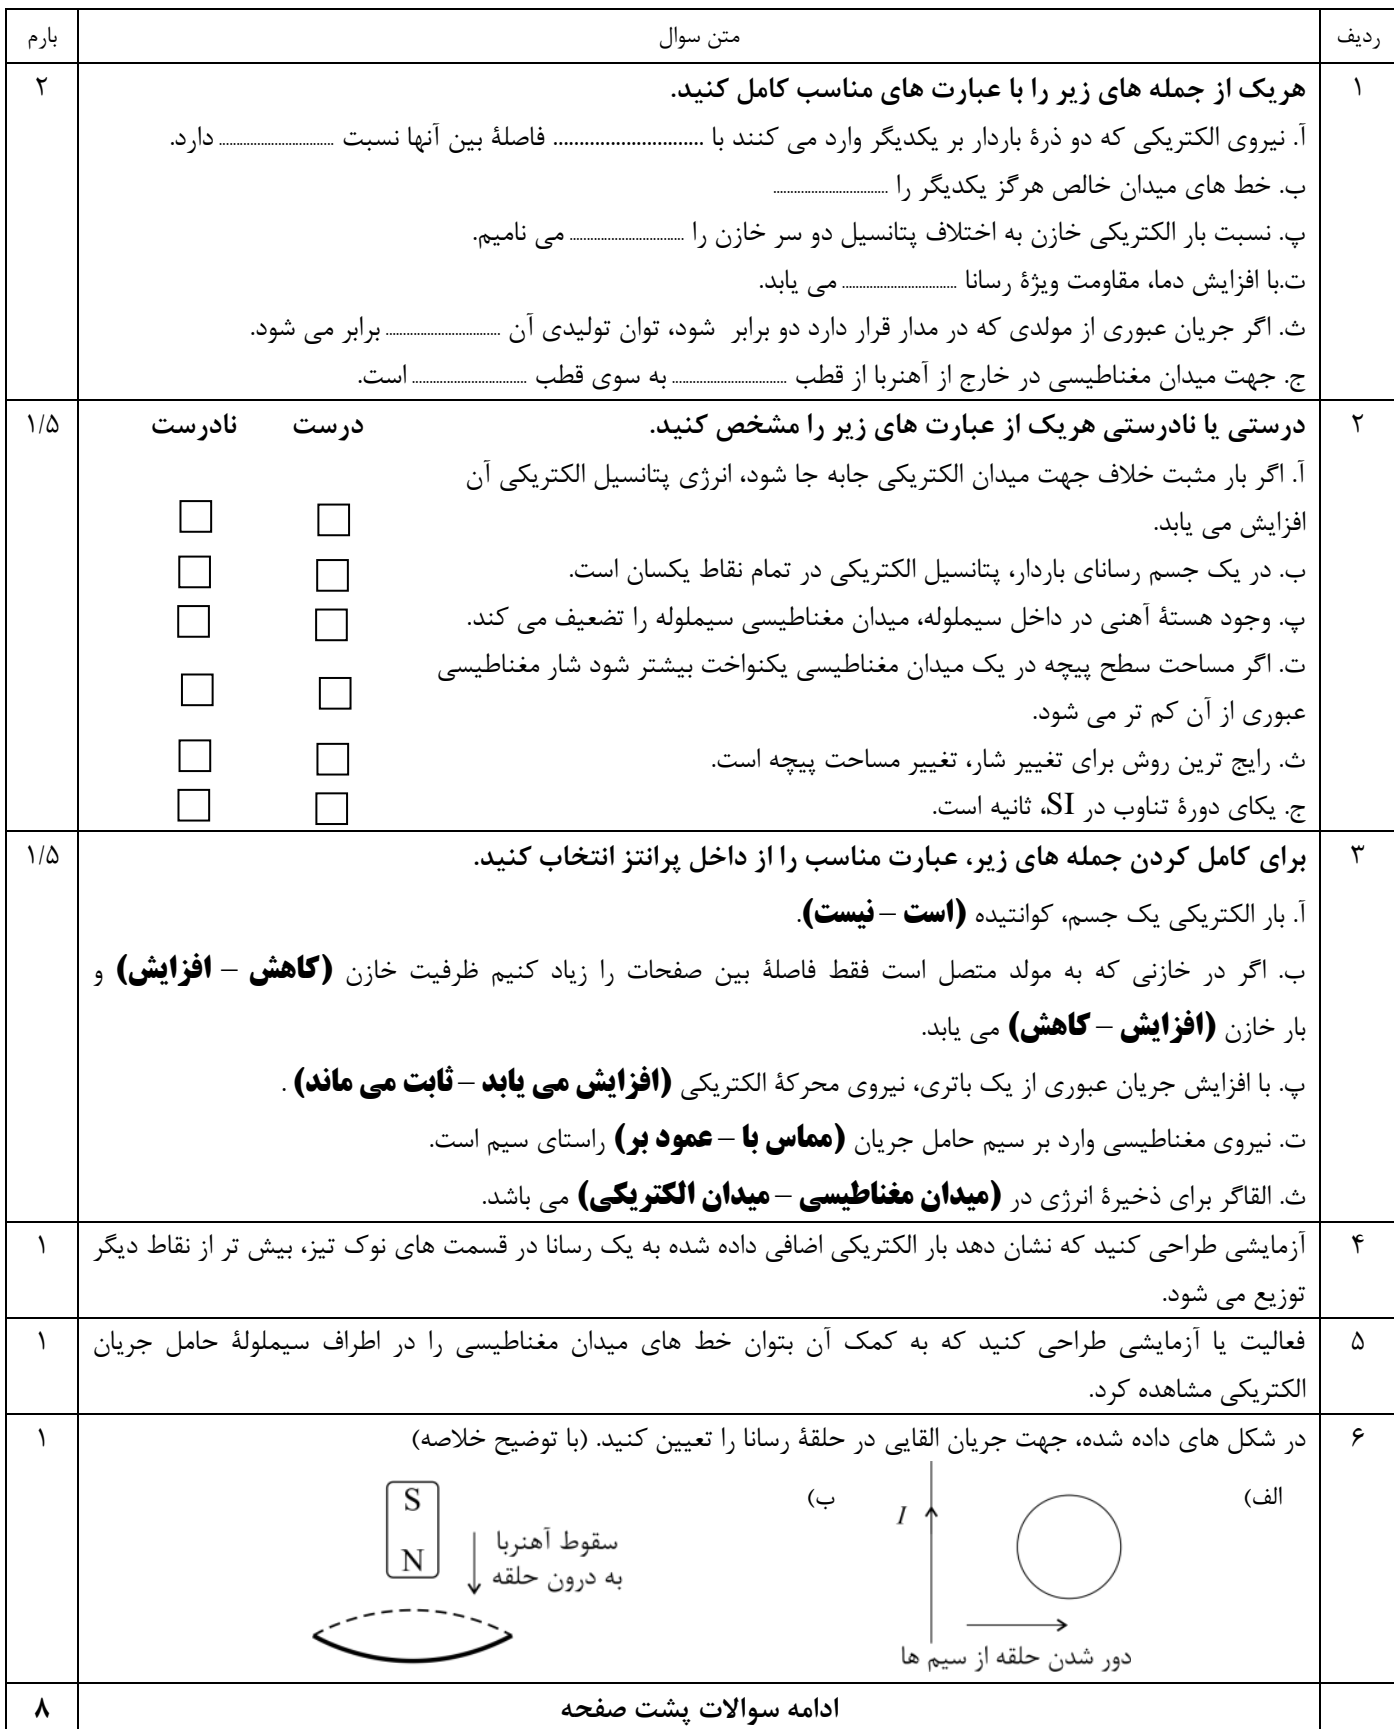 ردیف متن سوال بارم
۱ هریک از جمله های زیر را با عبارت های مناسب کامل کنید. ۲
آ. نیروی الکتریکی که دو ذرۀ باردار بر یکدیگر وارد می کنند با .............................. فاصلۀ بین آنها نسبت .............................. دارد.
ب. خط های میدان خالص هرگز یکدیگر را ..............................
پ. نسبت بار الکتریکی خازن به اختلاف پتانسیل دو سر خازن را .............................. می نامیم.
ت.با افزایش دما، مقاومت ویژۀ رسانا .............................. می یابد.
ث. اگر جریان عبوری از مولدی که در مدار قرار دارد دو برابر شود، توان تولیدی آن .............................. برابر می شود.
ج. جهت میدان مغناطیسی در خارج از آهنربا از قطب .............................. به سوی قطب .............................. است.
۲ درستی یا نادرستی هریک از عبارت های زیر را مشخص کنید. درست نادرست ۱/۵
آ. اگر بار مثبت خلاف جهت میدان الکتریکی جابه جا شود، انرژی پتانسیل الکتریکی آن
افزایش می یابد.
ب. در یک جسم رسانای باردار، پتانسیل الکتریکی در تمام نقاط یکسان است.
پ. وجود هستۀ آهنی در داخل سیملوله، میدان مغناطیسی سیملوله را تضعیف می کند.
ت. اگر مساحت سطح پیچه در یک میدان مغناطیسی یکنواخت بیشتر شود شار مغناطیسی
عبوری از آن کم تر می شود.
ث. رایج ترین روش برای تغییر شار، تغییر مساحت پیچه است.
ج. یکای دورۀ تناوب در SI، ثانیه است.
۳ برای کامل کردن جمله های زیر، عبارت مناسب را از داخل پرانتز انتخاب کنید. ۱/۵
آ. بار الکتریکی یک جسم، کوانتیده (است – نیست).
ب. اگر در خازنی که به مولد متصل است فقط فاصلۀ بین صفحات را زیاد کنیم ظرفیت خازن (کاهش – افزایش) و
بار خازن (افزایش – کاهش) می یابد.
پ. با افزایش جریان عبوری از یک باتری، نیروی محرکۀ الکتریکی (افزایش می یابد – ثابت می ماند) .
ت. نیروی مغناطیسی وارد بر سیم حامل جریان (مماس با – عمود بر) راستای سیم است.
ث. القاگر برای ذخیرۀ انرژی در (میدان مغناطیسی – میدان الکتریکی) می باشد.
۴ آزمایشی طراحی کنید که نشان دهد بار الکتریکی اضافی داده شده به یک رسانا در قسمت های نوک تیز، بیش تر از نقاط دیگر ۱
توزیع می شود.
۵ فعالیت یا آزمایشی طراحی کنید که به کمک آن بتوان خط های میدان مغناطیسی را در اطراف سیملولۀ حامل جریان ۱
الکتریکی مشاهده کرد.
۶ در شکل های داده شده، جهت جریان القایی در حلقۀ رسانا را تعیین کنید. (با توضیح خلاصه) ۱
الف)
I
دور شدن حلقه از سیم ها
ب)
S
N
سقوط آهنربا
به درون حلقه
ادامه سوالات پشت صفحه ۸